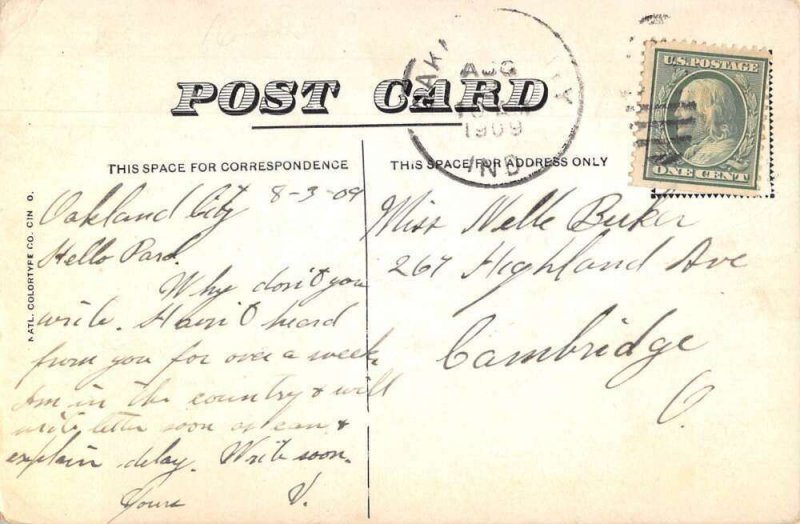 POST CARD
THIS SPACE FOR CORRESPONDENCE
THIS SPACE FOR ADDRESS ONLY
AUG
1909
IND
U.S. POSTAGE
ONE CENT
NATL. COLORTYPE CO. CIN. O.
Oakland City 8-3-09
Hello Pard.
Why don't you
write. Hain't heard
from you for over a week.
Am in the country & will
write letter soon as can &
explain delay. Write soon.
Yours V.
Miss Nelle
267 Highland Ave
Cambridge
O.